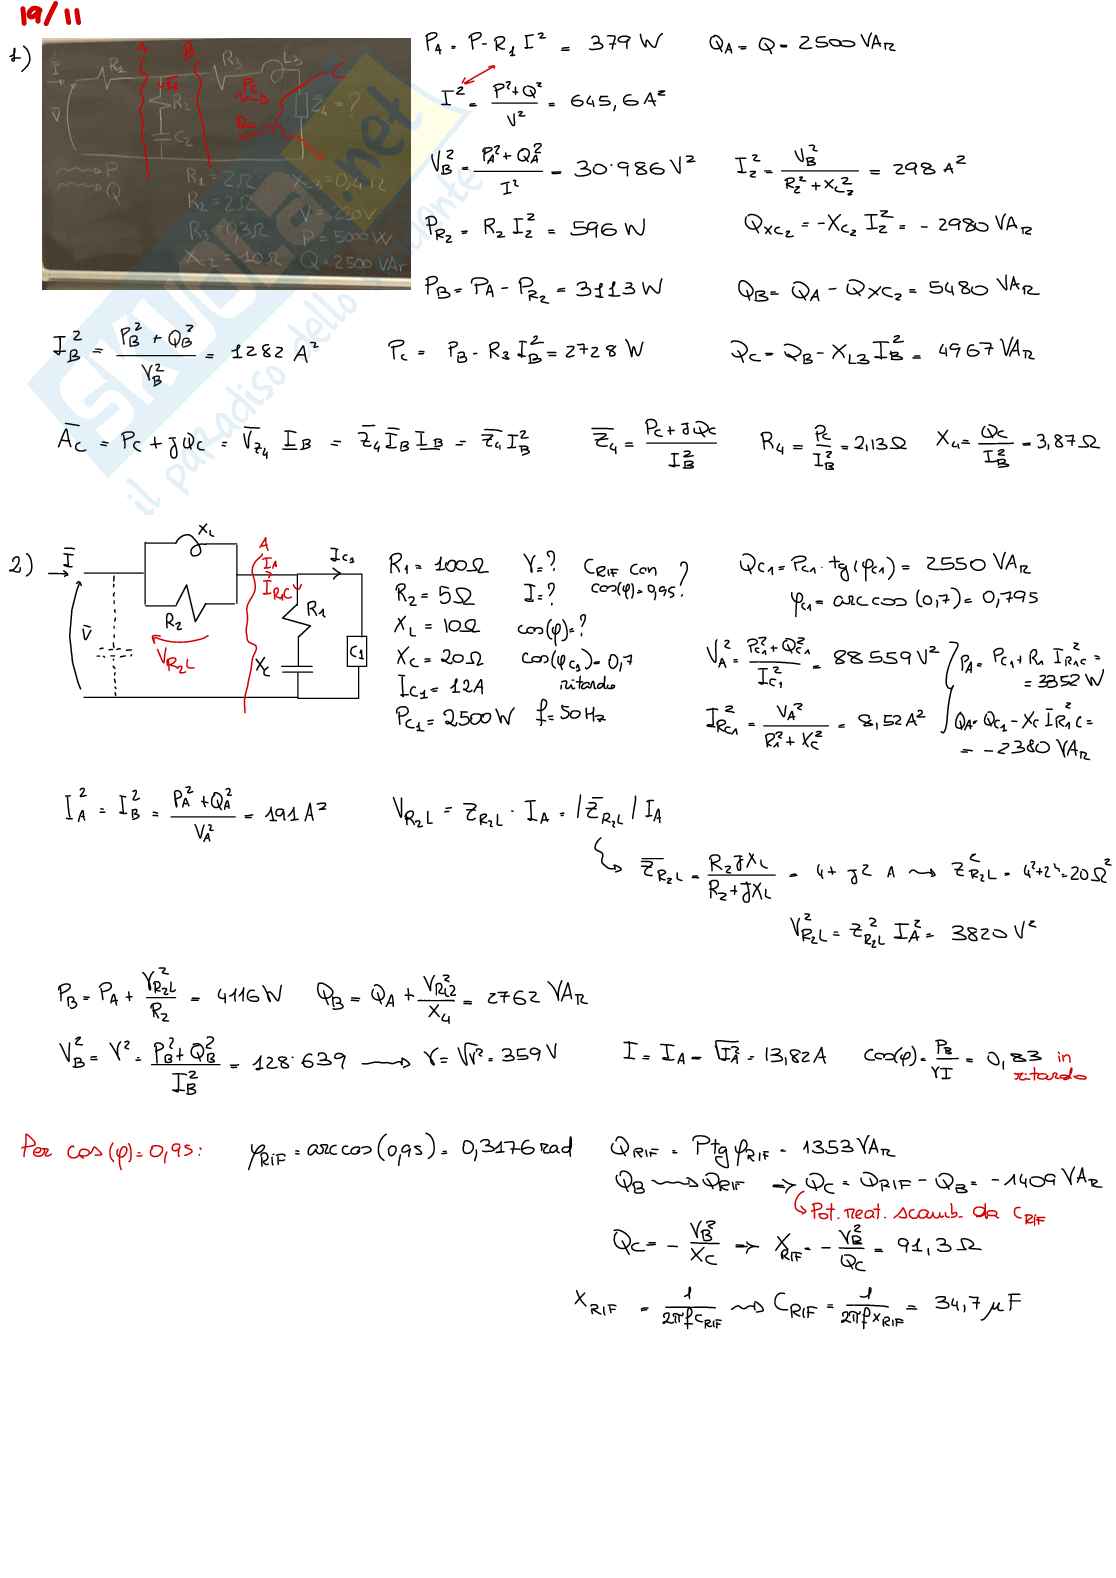 19/11
1)
R₁ A B R₃ L₃
I V R₂ C₂ Z₄ = ?
P
Q
R₁ = 2Ω
R₂ = 2Ω
R₃ = 0,3Ω
X_C2 = 10Ω
X_L3 = 0,4Ω
V = 230V
P = 5000W
Q = 2500 VAr
P_A = P - R₁ I² = 379 W Q_A = Q = 2500 VAR
I² = (P²+Q²)/V² = 645,6 A²
V_B² = (P_A²+Q_A²)/I² = 30·986 V² I₂² = V_B²/(R₂²+X_C2²) = 298 A²
P_R2 = R₂ I₂² = 596 W Q_XC2 = -X_C2 I₂² = -2980 VAR
P_B = P_A - P_R2 = 3113 W Q_B = Q_A - Q_XC2 = 5480 VAR
I_B² = (P_B²+Q_B²)/V_B² = 1282 A² P_C = P_B - R₃ I_B² = 2728 W Q_C = Q_B - X_L3 I_B² = 4967 VAR
A̅_C = P_C + jQ_C = V̅_Z4 I̲_B = Z̅₄ I̅_B I̲_B = Z̅₄ I_B² Z̅₄ = (P_C + jQ_C)/I_B² R₄ = P_C/I_B² = 2,13 Ω X₄ = Q_C/I_B² = 3,87 Ω
2)
I̅ X_L R₂ V_R2L A I_A I_R1C I_C1 R₁ X_C C1 V̅
R₁ = 100Ω V = ? C_RIF con cos(φ) = 0,95 ?
R₂ = 5Ω I = ?
X_L = 10Ω cos(φ) = ?
X_C = 20Ω cos(φ_C1) = 0,7 ritardo
I_C1 = 12A
P_C1 = 2500 W f = 50 Hz
Q_C1 = P_C1 · tg(φ_C1) = 2550 VAR
φ_C1 = arccos(0,7) = 0,795
V_A² = (P_C1²+Q_C1²)/I_C1² = 88559 V² P_A = P_C1 + R₁ I_R1C² = = 3352 W
I_RC1² = V_A²/(R₁²+X_C²) = 8,52 A² Q_A = Q_C1 - X_C I_R1C² = = -2380 VAR
I_A² = I_B² = (P_A²+Q_A²)/V_A² = 191 A² V_R2L = Z_R2L · I_A = |Z̅_R2L| I_A
Z̅_R2L = R₂jX_L/(R₂+jX_L) = 4 + j2 A ⇝ Z²_R2L = 4²+2² = 20 Ω²
V²_R2L = Z²_R2L I_A² = 3820 V²
P_B = P_A + V²_R2L/R₂ = 4116 W Q_B = Q_A + V²_RL2/X₄ = 2762 VAR
V_B² = V² = (P_B²+Q_B²)/I_B² = 128·639 → V = √V² = 359 V I = I_A = √I_A² = 13,82 A cos(φ) = P_B/VI = 0,83 in ritardo
Per cos(φ) = 0,95: φ_RIF = arccos(0,95) = 0,3176 rad Q_RIF = P tg φ_RIF = 1353 VAR
Q_B ⇝ Q_RIF → Q_C = Q_RIF - Q_B = -1409 VAR
↳ Pot. reat. scamb. da C_RIF
Q_C = - V_B²/X_C → X_RIF = - V_B²/Q_C = 91,3 Ω
X_RIF = 1/(2πf C_RIF) ⇝ C_RIF = 1/(2πf X_RIF) = 34,7 μF
SKUOLA.net
il paradiso dello studente